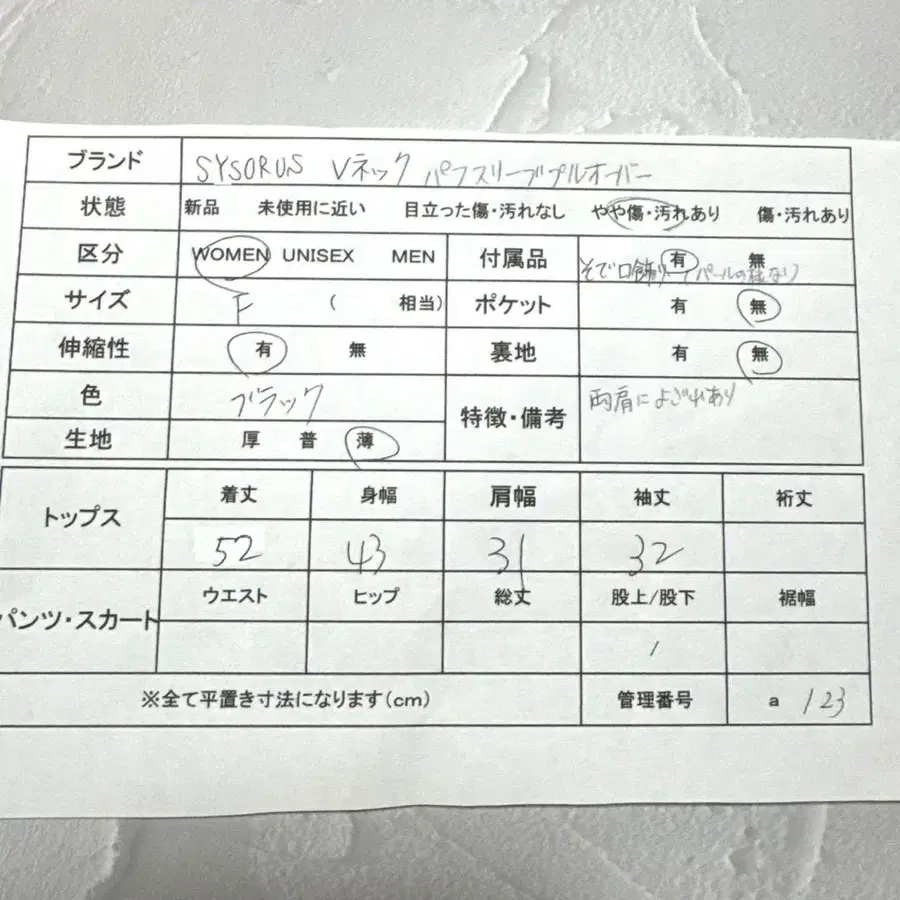 ブランド SYSORUS Vネック パフスリーブプルオーバー
状態 新品 未使用に近い 目立った傷・汚れなし やや傷・汚れあり 傷・汚れあり
区分 WOMEN UNISEX MEN 付属品 有 無
そで口飾り パールの様な
サイズ F ( 相当) ポケット 有 無
伸縮性 有 無 裏地 有 無
色 ブラック 特徴・備考 両肩によごれあり
生地 厚 普 薄
トップス 着丈 身幅 肩幅 袖丈 裄丈
52 43 31 32
パンツ・スカート ウエスト ヒップ 総丈 股上/股下 裾幅
/
※全て平置き寸法になります(cm) 管理番号 a 123